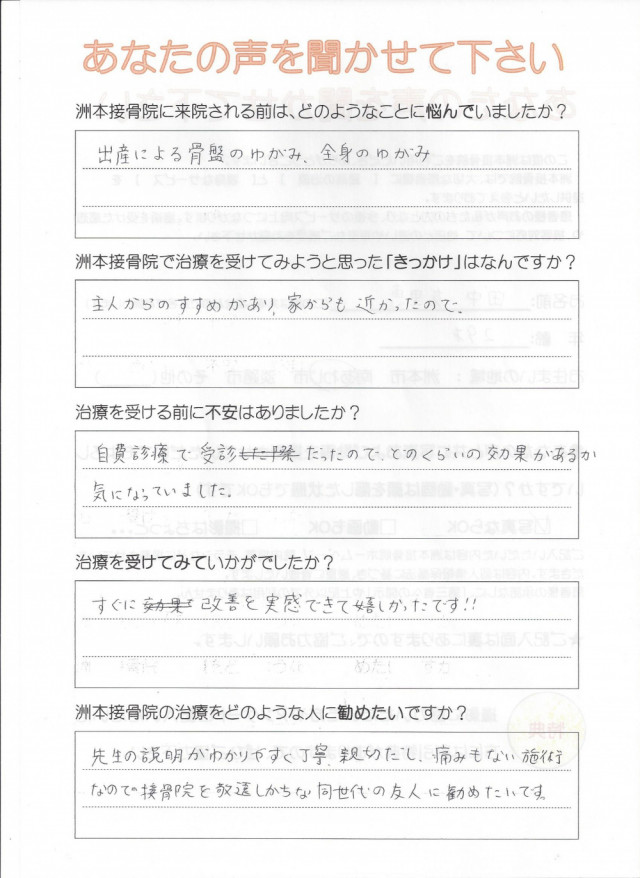 あなたの声を聞かせて下さい
洲本接骨院に来院される前は、どのようなことに悩んでいましたか?
出産による骨盤のゆがみ、全身のゆがみ
洲本接骨院で治療を受けてみようと思った「きっかけ」はなんですか?
主人からのすすめがあり、家からも近かったので。
治療を受ける前に不安はありましたか?
自費診療で受診した際だったので、どのくらいの効果があるか
気になっていました。
治療を受けてみていかがでしたか?
すぐに効果を改善を実感できて嬉しかったです!!
洲本接骨院の治療をどのような人に勧めたいですか?
先生の説明がわかりやすく丁寧、親切だし、痛みもない施術
なので接骨院を敬遠しがちな同世代の友人に勧めたいです。